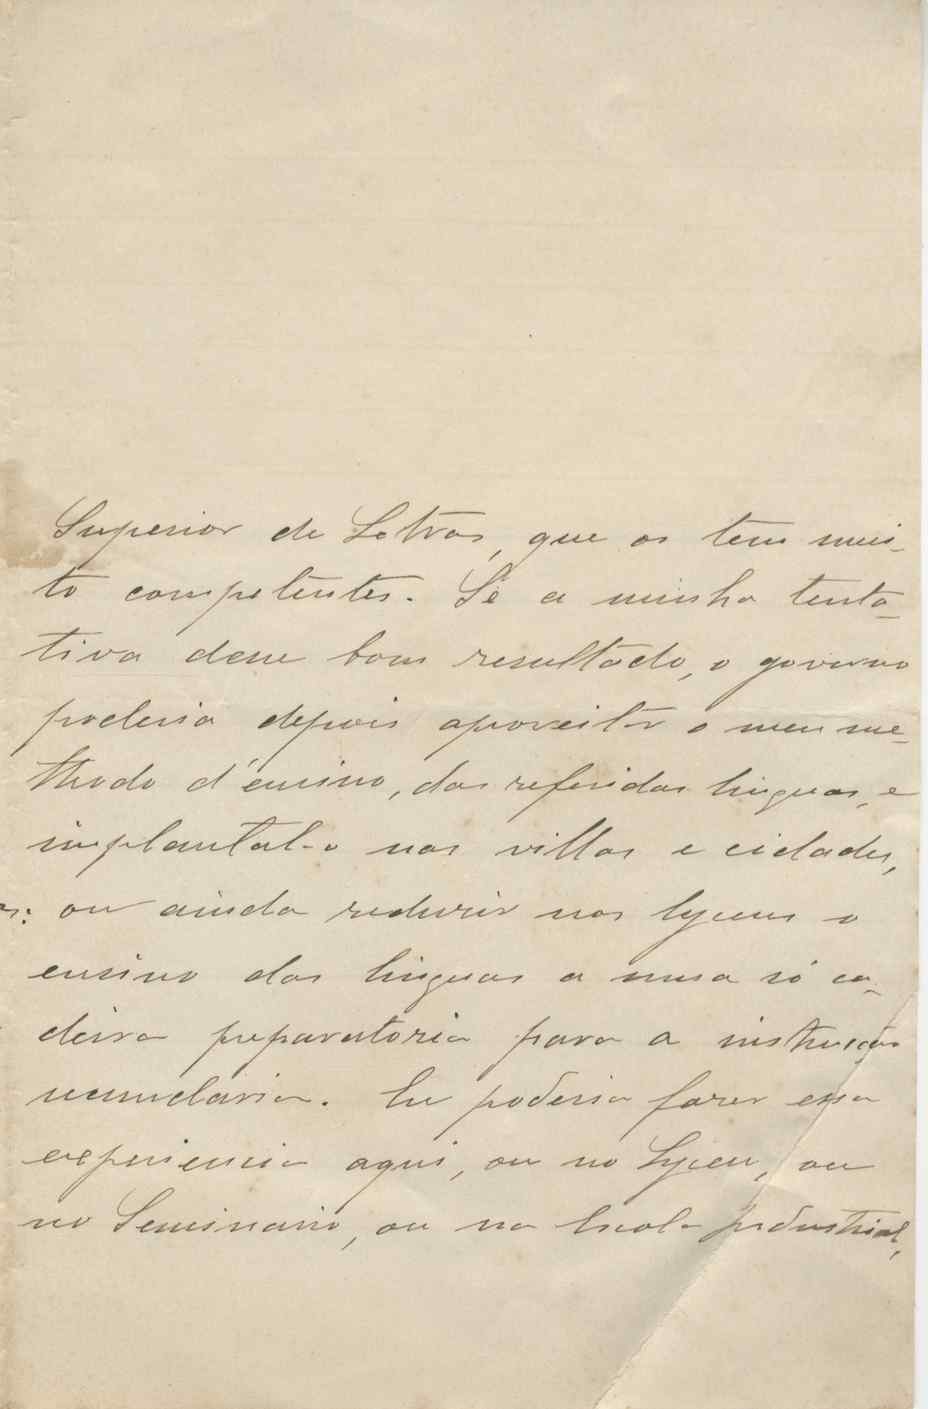 Superior de Letras, que os tem mui-
to competentes. Se a minha tenta-
tiva desse bom resultado, o governo
poderia depois aproveitar o meu me-
thodo d'ensino, das referidas linguas, e
implantal-o nas villas e cidades,
ou ainda reduzir nos lyceus o
ensino das linguas a uma só ca-
deira preparatoria para a instrucção
secundaria. Eu poderia fazer essa
experiencia aqui, ou no Lyceu, ou
no Seminario, ou na Escola Industrial,